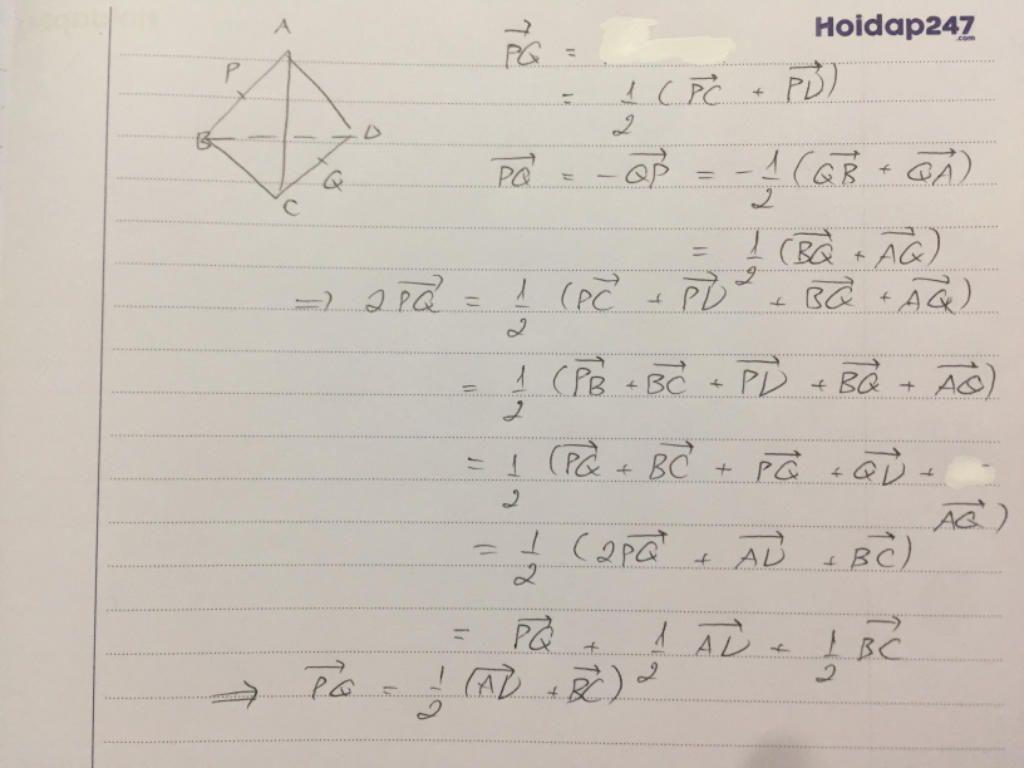 Hoidap247
.com
A
P
B
D
Q
C
PQ⃗ =
= 1/2 (PC⃗ + PD⃗)
PQ⃗ = -QP⃗ = -1/2 (QB⃗ + QA⃗)
= 1/2 (BQ⃗ + AQ⃗)
=> 2PQ⃗ = 1/2 (PC⃗ + PD⃗ + BQ⃗ + AQ⃗)
= 1/2 (PB⃗ + BC⃗ + PD⃗ + BQ⃗ + AQ⃗)
= 1/2 (PQ⃗ + BC⃗ + PQ⃗ + QD⃗ +
AQ⃗)
= 1/2 (2PQ⃗ + AD⃗ + BC⃗)
= PQ⃗ + 1/2 AD⃗ + 1/2 BC⃗
=> PQ⃗ = 1/2 (AD⃗ + BC⃗)